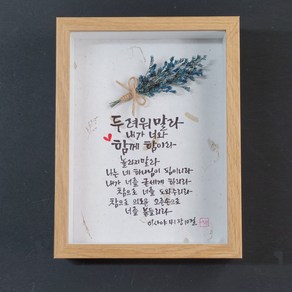 두려워말라
내가 너와
함께 함이라
놀라지말라
나는 네 하나님이 됨이니라
내가 너를 굳세게 하리라
참으로 너를 도와주리라
참으로 의로운 오른손으로
너를 붙들리라
이사야 41장 10절